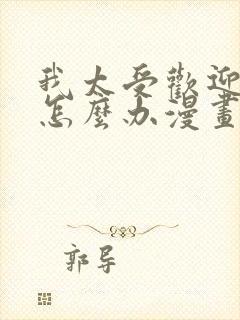 我太受歡迎
怎麼办漫畫
郭导